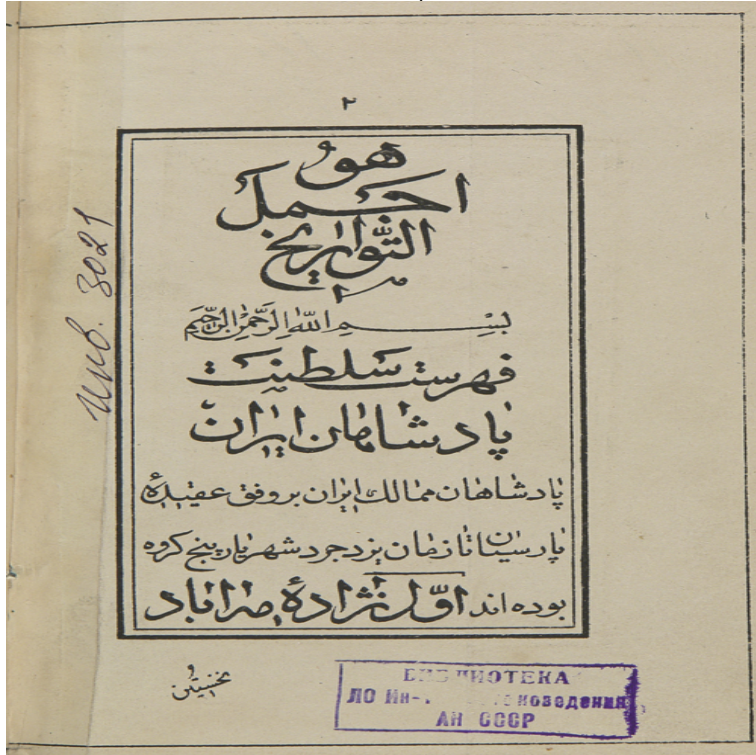 ۲
هو
اجمل
التّواریخ
بِسْمِ اللّٰهِ الرَّحْمٰنِ الرَّحِیْمِ
فهرست سلطنت
پادشاهان ایران
پادشاهان ممالک ایران بر وفق عقیدهٔ
پارسیان تا زمان یزدجرد شهریار پنج گروه
بوده اند اوّل نژادهٔ مه‌اباد
نخستین
инв. 3021
БИБЛИОТЕКА
ЛО Ин-
АН СССР